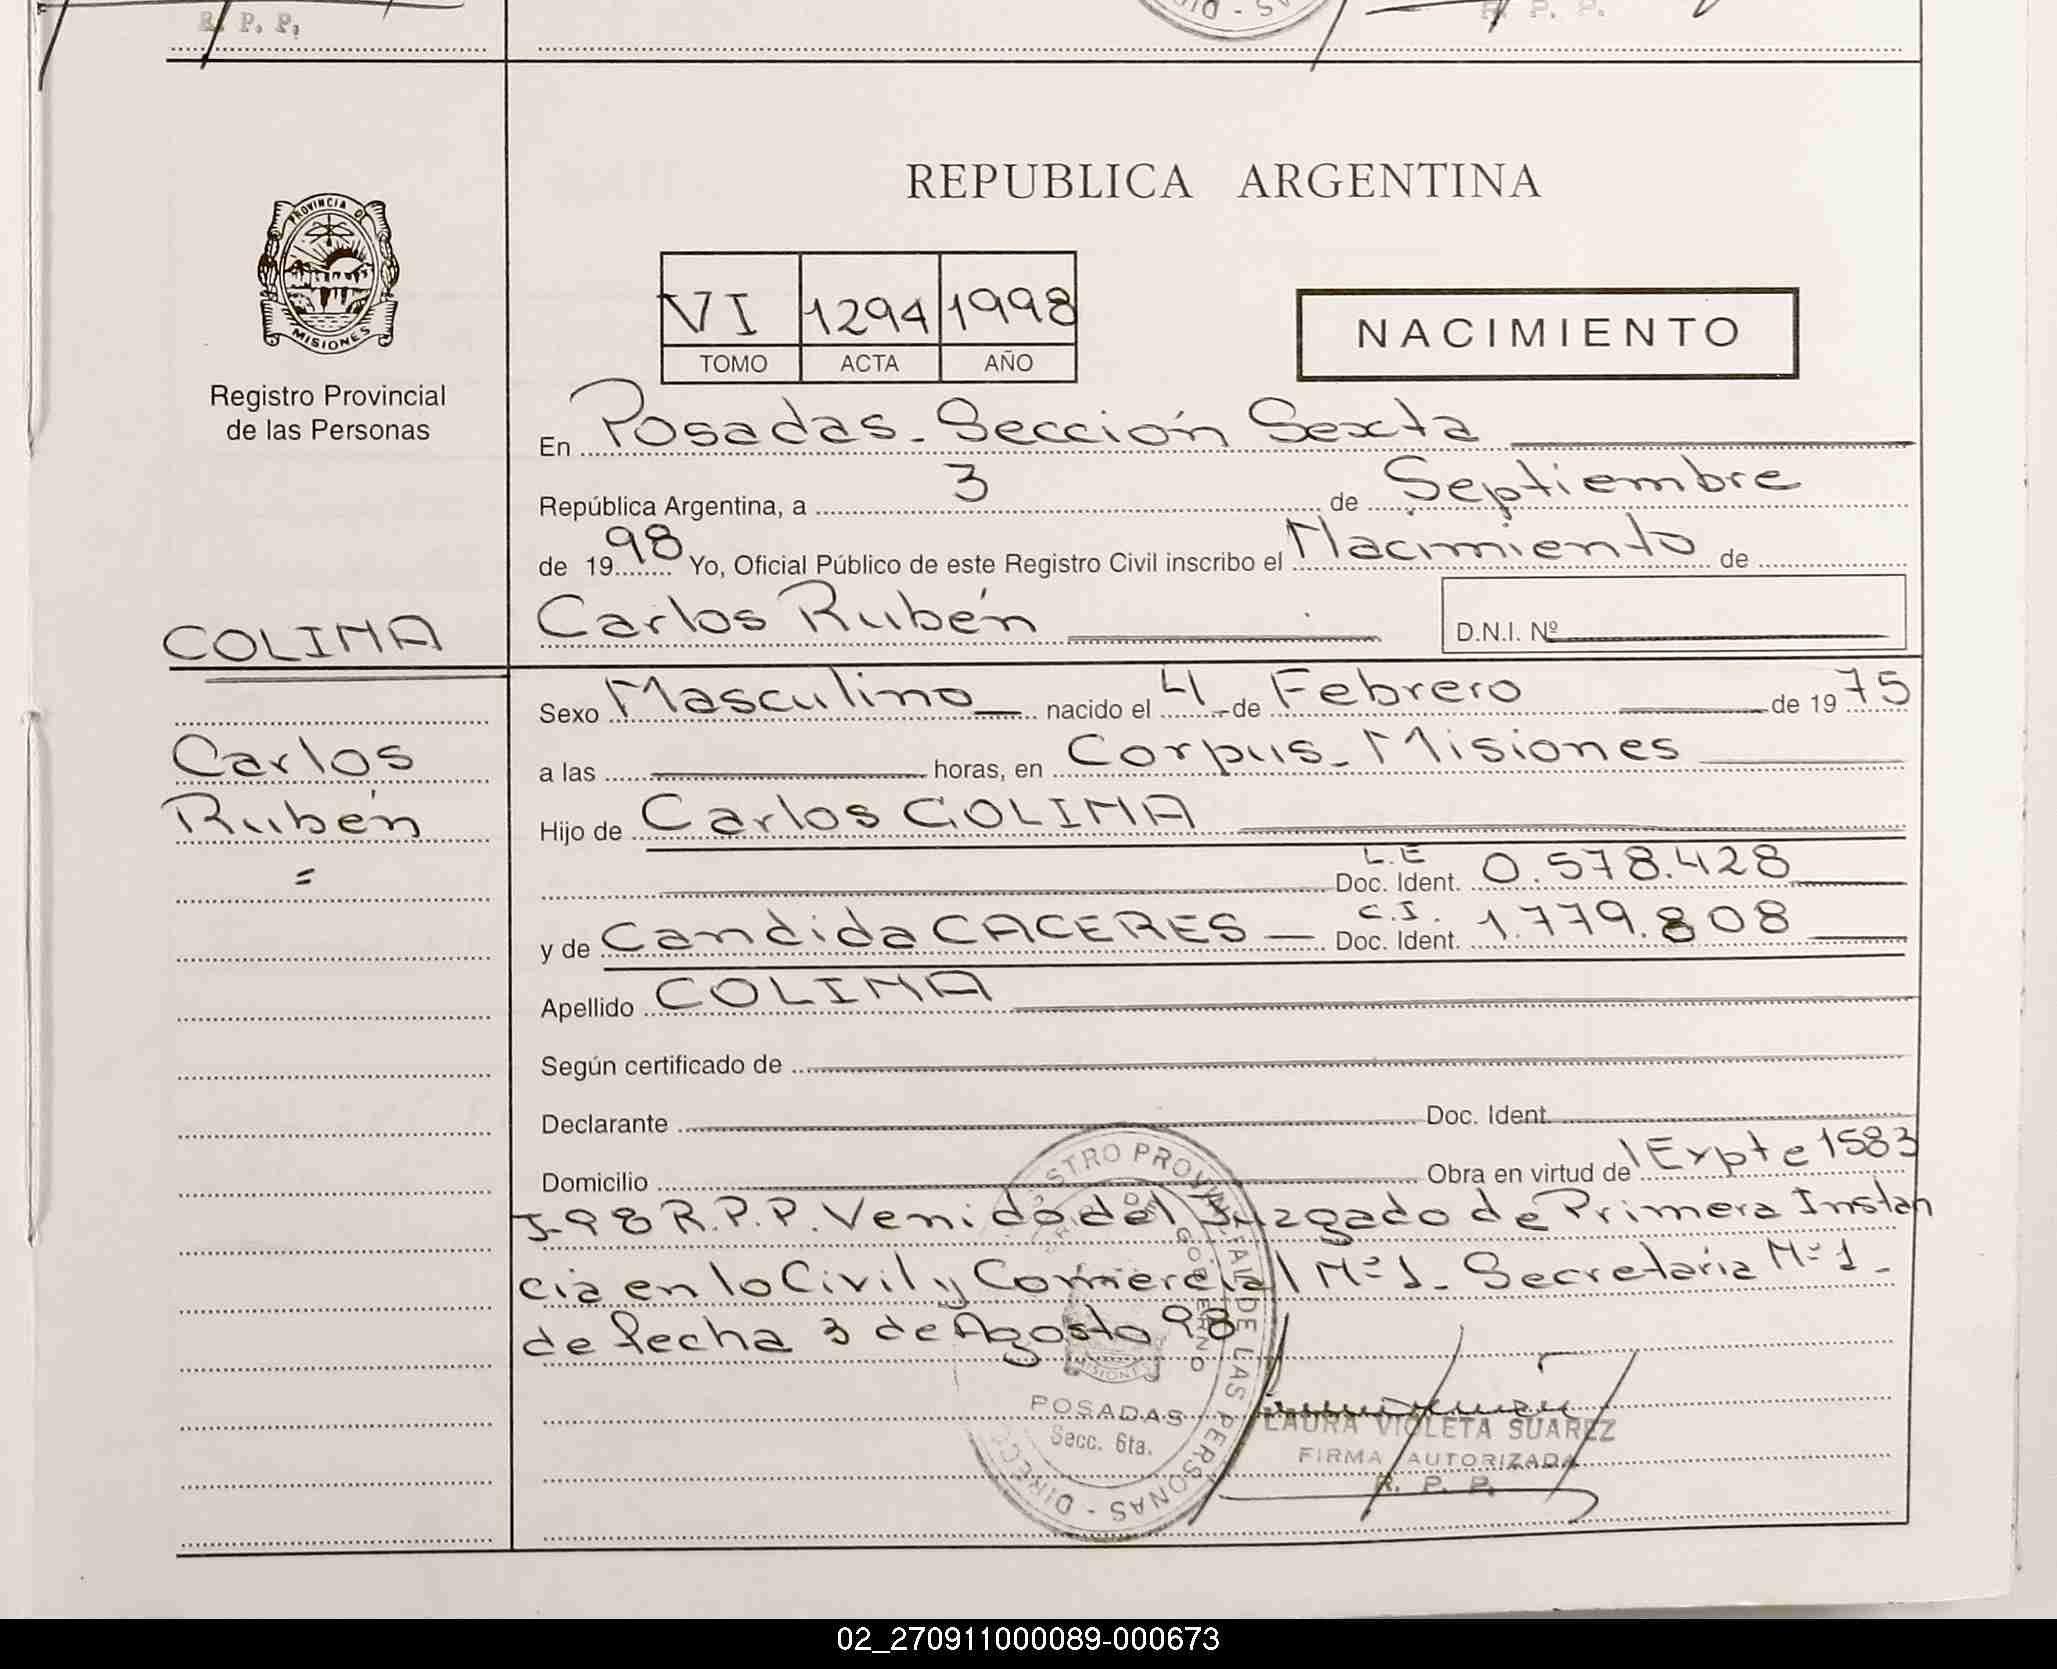 R. P. P.
R. P. P.
PROVINCIA DE
MISIONES
Registro Provincial
de las Personas
REPUBLICA ARGENTINA
VI 1294 1998
TOMO ACTA AÑO
NACIMIENTO
En Posadas - Sección Sexta
República Argentina, a 3 de Septiembre
de 1998 Yo, Oficial Público de este Registro Civil inscribo el Nacimiento de
Carlos Rubén D.N.I. Nº
COLIMA
Carlos
Rubén
=
Sexo Masculino nacido el 4 de Febrero de 1975
a las horas, en Corpus - Misiones
Hijo de Carlos COLIMA
L.E
Doc. Ident. 0.578.428
C.I.
y de Candida CACERES Doc. Ident. 1.779.808
Apellido COLIMA
Según certificado de
Declarante Doc. Ident.
Domicilio Obra en virtud de Expte 1583
J-98 R.P.P. Venido del Juzgado de Primera Instan
cia en lo Civil y Comercial Nº 1 - Secretaria Nº 1 -
de fecha 3 de Agosto 98
POSADAS
Secc. 6ta.
LAURA VIOLETA SUAREZ
FIRMA AUTORIZADA
R. P. P.
02_270911000089-000673